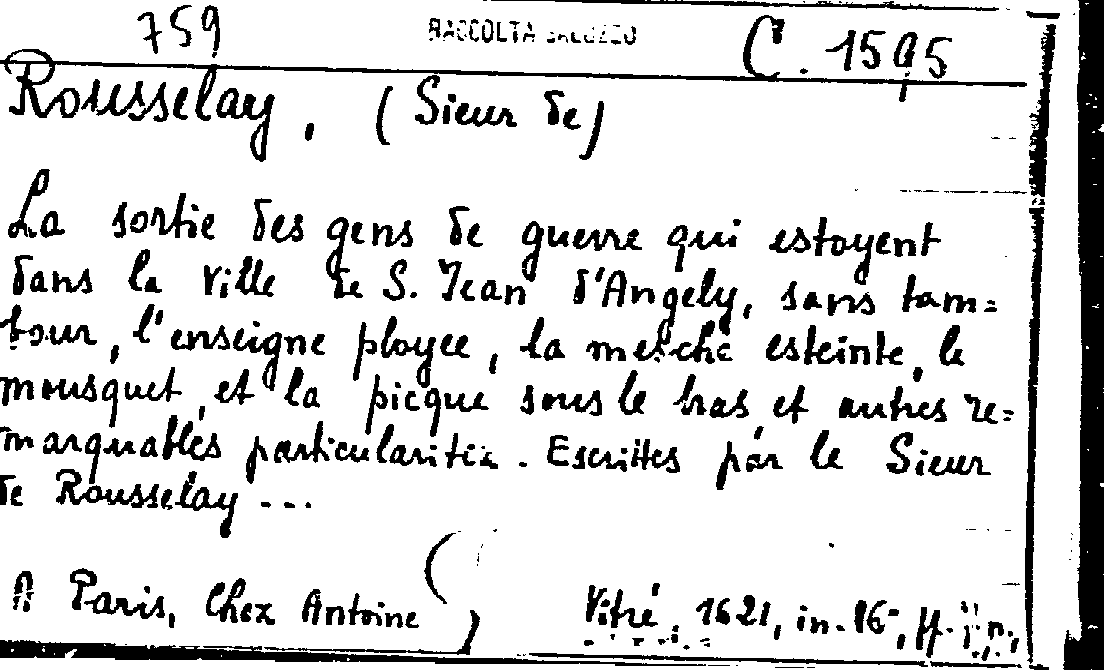 759 RACCOLTA SALUZZO C. 1595
Rousselay, (Sieur de)
La sortie des gens de guerre qui estoyent
dans la Ville de S. Jean d'Angely, sans tam=
bour, l'enseigne ployee, la mesche esteinte, le
mousquet, et la picque sous le bras, et autres re=
marquables particularitez. Escrittes par le Sieur
de Rousselay ...
A Paris, Chez Antoine Vitré, 1621, in-16°, ff.